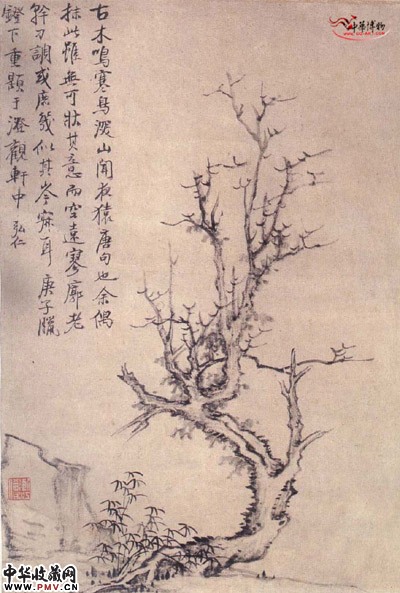 古木鳴寒鳥深山聞夜猿唐句也余偶
抹此雖無可狀其意而空遠寥廓老
幹刁調或庶幾似其岑寂耳 庚子臘
鐙下重題于澄觀軒中 弘仁
中華博物
中华收藏网
WWW.PMV.CN